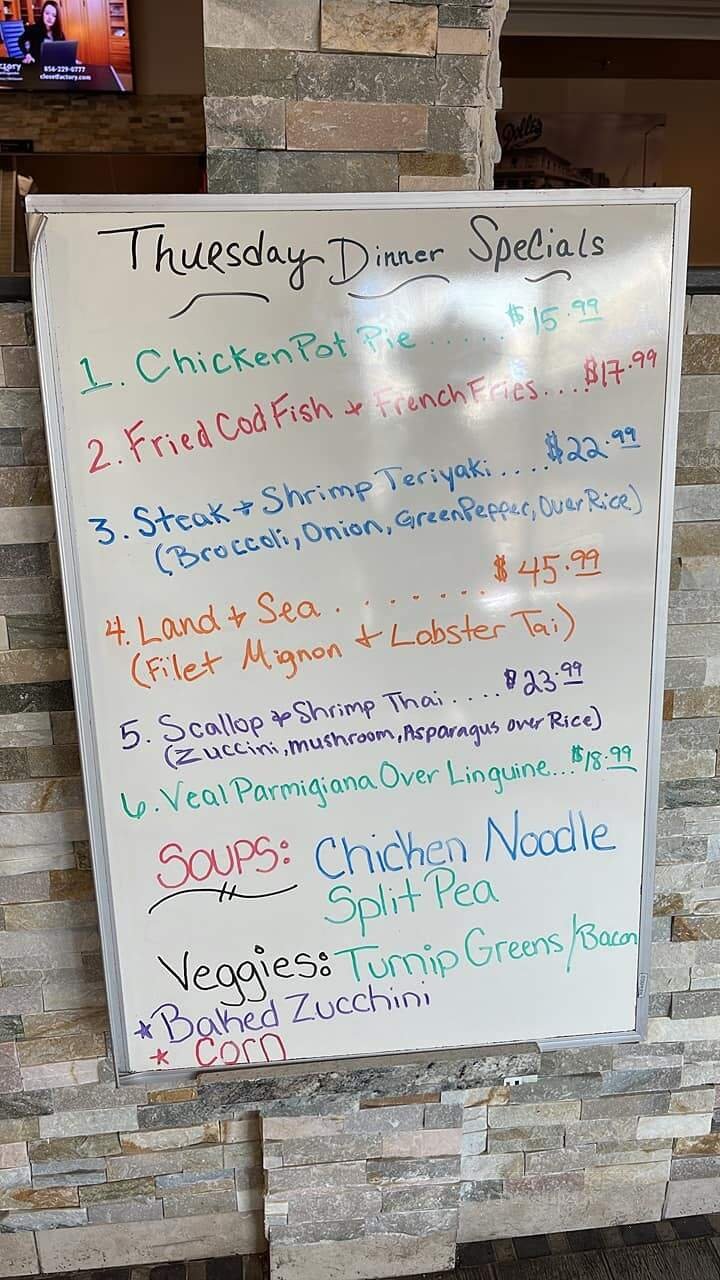 856-229-0777
closetfactory.com
Thursday Dinner Specials
1. Chicken Pot Pie ...... $15.99
2. Fried Cod Fish & French Fries.... $17.99
3. Steak & Shrimp Teriyaki .... $22.99
(Broccoli, Onion, Green Pepper, Over Rice)
4. Land & Sea . . . . . . . . $45.99
(Filet Mignon & Lobster Tai)
5. Scallop & Shrimp Thai .... $23.99
(Zuccini, mushroom, Asparagus over Rice)
6. Veal Parmigiana Over Linguine... $18.99
Soups: Chicken Noodle
Split Pea
Veggies: Turnip Greens/Bacon
* Baked Zucchini
* Corn